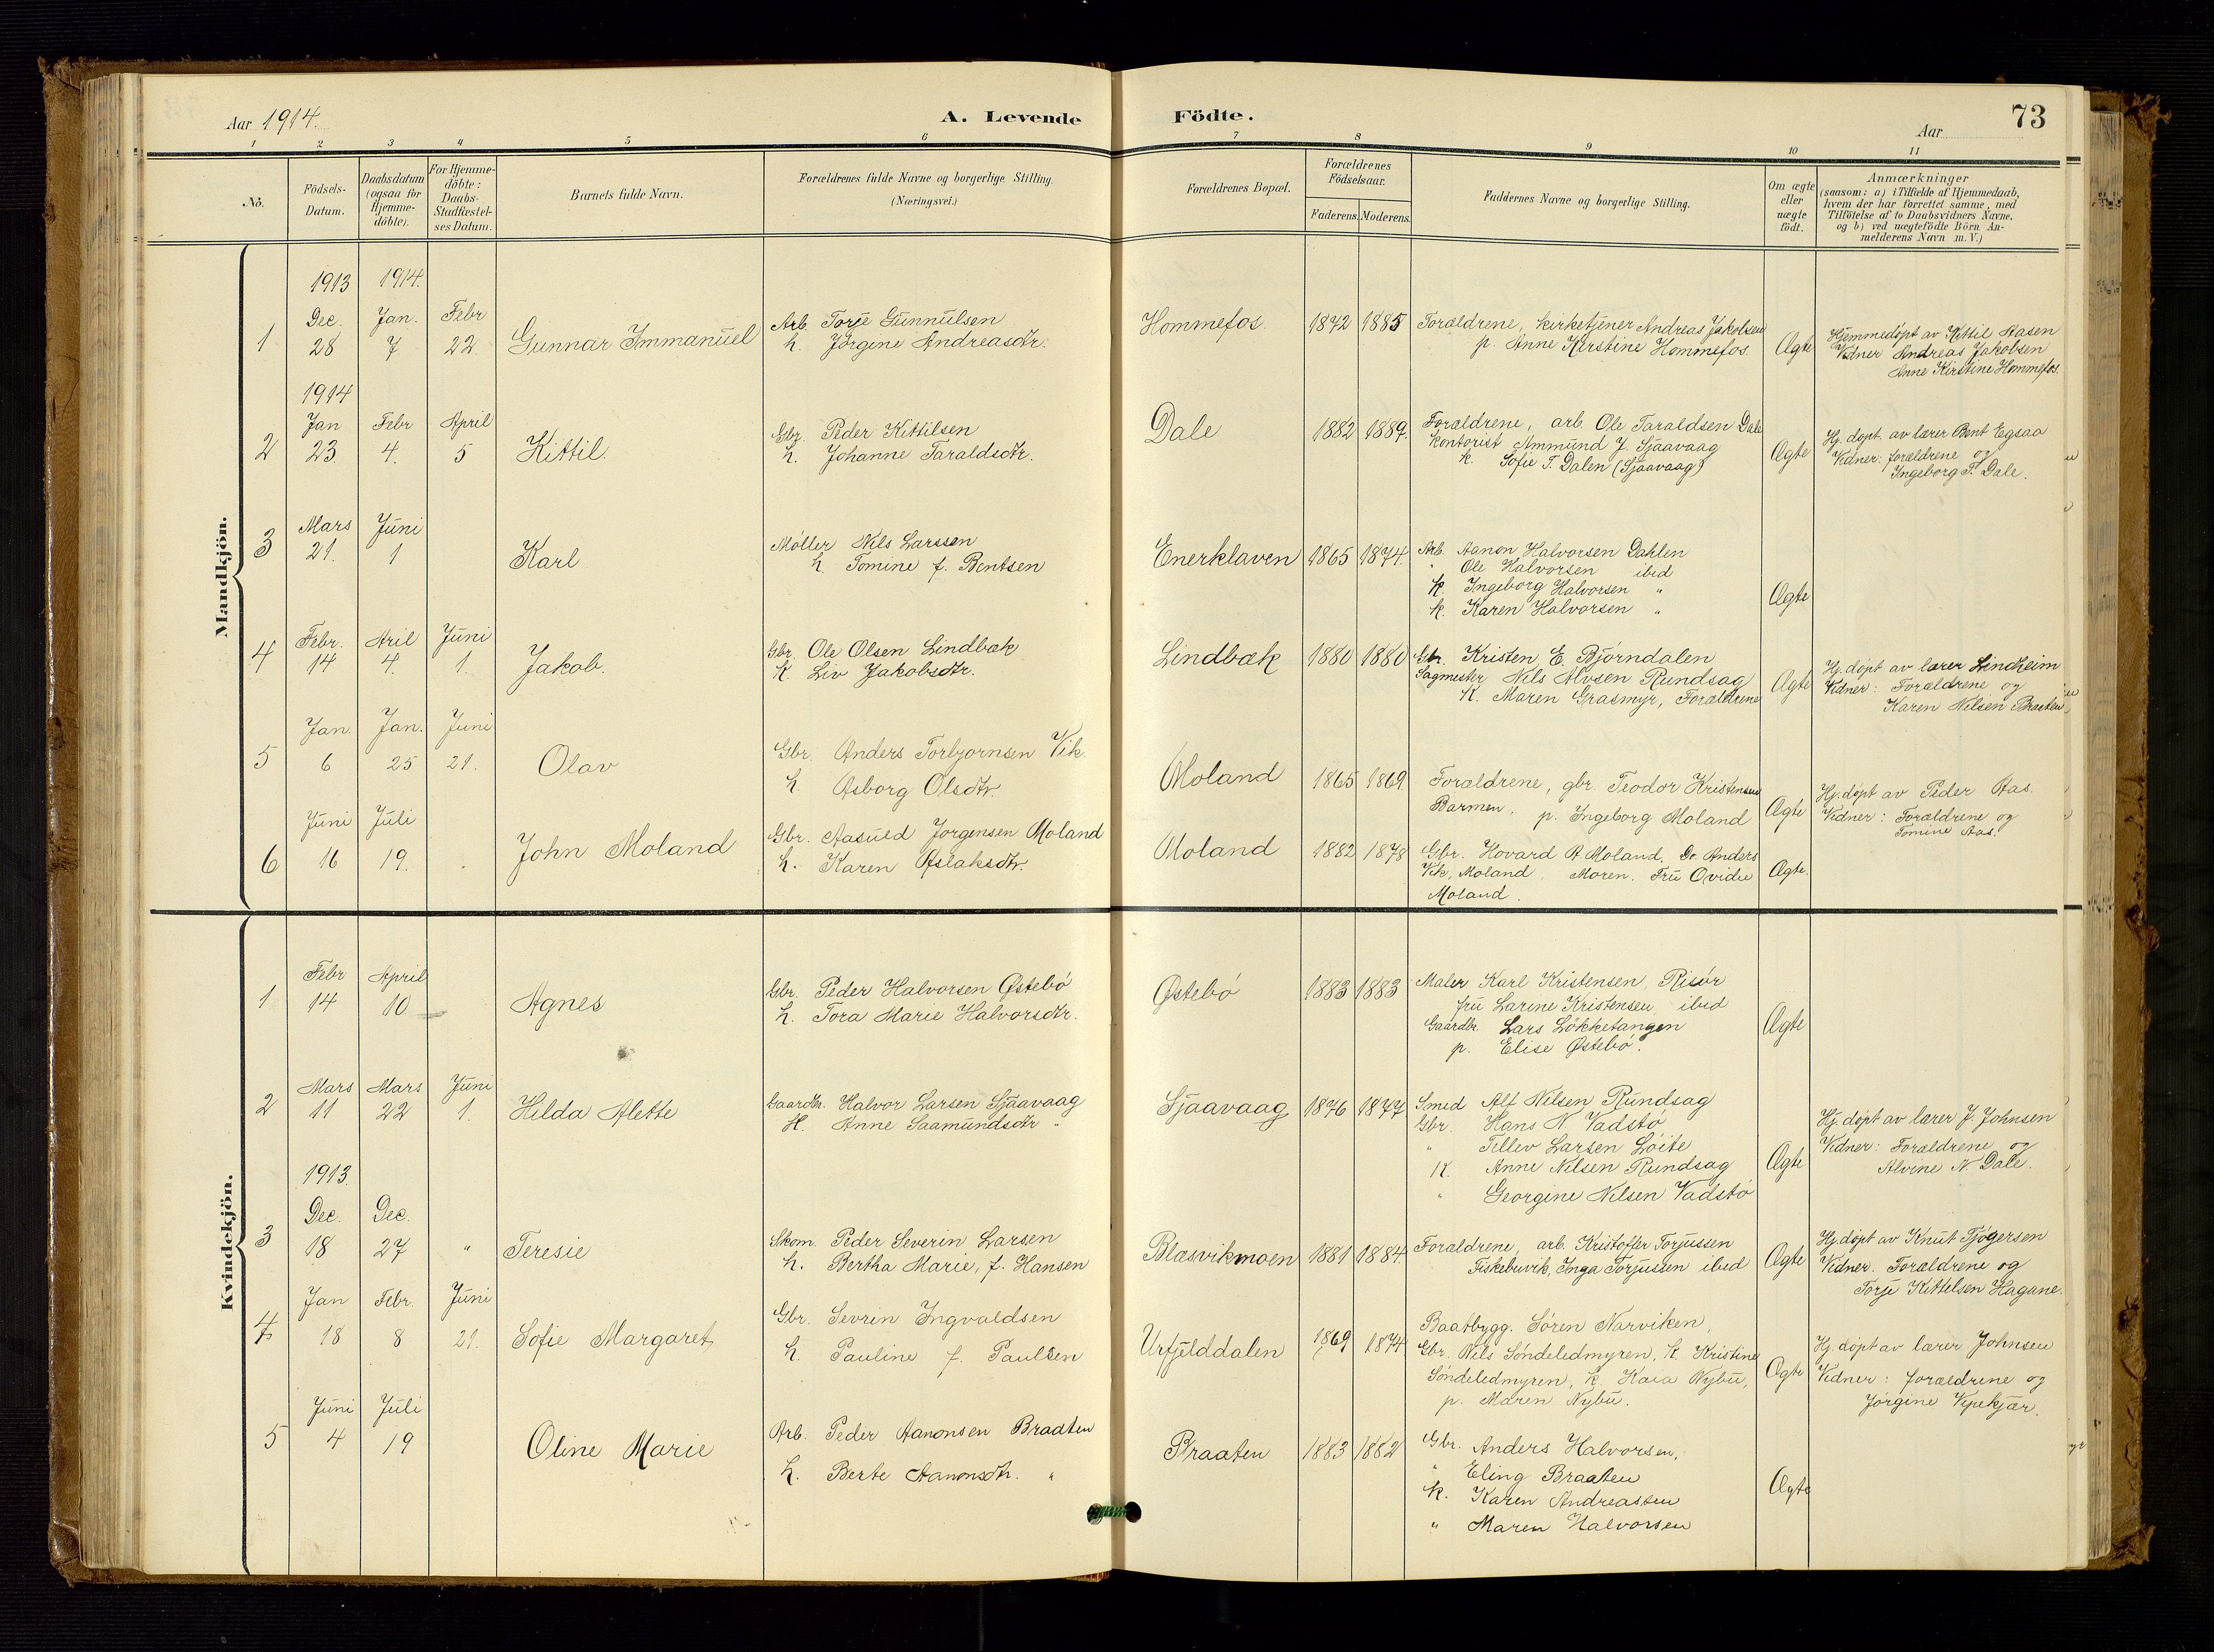 Aar 1914.
A. Levende Födte.
Aar
73
1 2 3 4 5 6 7 8 9 10 11
No.
Födsels-Datum.
Daabsdatum (ogsaa for Hjemme-döbte).
For Hjemme-döbte: Daabs-Stadfæstel-ses Datum.
Barnets fulde Navn.
Forældrenes fulde Navne og borgerlige Stilling. (Næringsvei.)
Forældrenes Bopæl.
Forældrenes Födselsaar.
Faderens. Moderens.
Faddernes Navne og borgerlige Stilling.
Om ægte eller uægte födt.
Anmærkninger
(saasom: a) i Tilfælde af Hjemmedaab,
hvem der har forrettet samme, med
Tilföielse af to Daabsvidners Navne,
og b) ved uægtefödte Börn An-
melderens Navn m. V.)
Mandkjön.
1913 1914.
Dec. Jan. Febr
1 28 7 22 Gunnar Immanuel
Arb. Torje Gunnulsen
h. Jørgine Andreasdtr.
Hommefos. 1842 1885
Forældrene, kirketjener Andreas Jakobsen
p. Anne Kirstine Hommefos.
Ægte
Hjemmedøpt av Kittil Aasen
Vidner Andreas Jakobsen
Anne Kirstine Hommefos.
1914
Jan Febr April
2 23 4. 5 Kittil.
Gbr. Peder Kittilsen
h. Johanne Taraldsdtr.
Dale 1882 1889.
Forældrene, arb. Ole Taraldsen Dale
Kontorist Ammund J. Sjaavaag
k. Sofie T. Dalen (Sjaavaag)
Ægte
Hj. døpt. av lærer Bent Egsaa
Vidner: forældrene og
Ingeborg T. Dale.
Mars Juni
3 21. 1 Karl
Møller Nils Larssen
h. Tomine f. Bentsen
Enerklaven 1865 1874.
Arb. Aanon Halvorsen Dahlen
" Ole Halvorsen ibid
k. Ingeborg Halvorsen "
k. Karen Halvorsen "
Ægte
Febr. Aril Juni
4 14 4. 1. Jakob.
Gbr. Ole Olsen Lindbæk
k. Liv Jakobsdtr.
Lindbæk 1880 1880
Gbr. Kristen E. Bjørndalen
Sagmester Nils Alvsen Rundsag
K. Maren Grasmyr, Forældrene
Ægte
Hj. døpt av lærer Lindheim
Vidner: Forældrene og
Karen Nilsen Braaten
Jan. Jan. Juni
5 6 25 21. Olav
Gbr. Anders Torbjørnsen Vik.
h. Asborg Olsdtr.
Moland 1865 1869.
Forældrene, gbr. Teodor Kristensen
Barmen, p. Ingeborg Moland
Ægte
Hj. døpt av Peder Aas.
Vidner: Forældrene og
Tomine Aas.
Juni Juli
6 16 19. John Moland
Gbr. Aasuld Jørgensen Moland
h. Karen Aslaksdtr.
Moland 1882 1878
Gbr. Hovard A Moland, Do. Anders
Vik, Moland. Moren. Fru Ovidie
Moland.
Ægte.
Kvindekjön.
Febr April
1 14 10 Agnes
Gbr. Peder Halvorsen Østebø
h. Tora Marie Halvorsdtr.
Østebø 1883 1883
Maler Karl Kristensen, Risør
fru Larine Kristensen ibid
Gaardbr. Lars Løkketangen
p. Elise Østebø.
Ægte
Mars Mars Juni
2 11 22 1. Hilda Alette
Gaardbr. Halvor Larsen Sjaavaag
H. Anne Saamundsdtr "
Sjaavaag 1876 1877
Smed Alf Nilsen Rundsag
Gbr. Hans N Vadstø
" Tellev Larsen Løite
K. Anne Nilsen Rundsag
" Georgine Nilsen Vadstø
Ægte
Hj. døpt av lærer J. Johnsen
Vidner: Forældrene og
Alvine N Dale.
1913.
Dec. Dec.
3 18 27 " Teresie
Skom. Peder Severin Larsen
h. Bertha Marie, f. Hansen
Blæsvikmoen 1881 1884.
Forældrene, arb. Kristoffer Torjussen
Fiskebuvik, Inga Torjussen ibid
Ægte
Hj. døpt av Knut Tjøgersen
Vidner. Forældrene og
Torje Kittelsen Hagane.
Jan Febr. Juni
4 18 8 21. Sofie Margaret
Gbr. Sevrin Ingvaldsen
h. Pauline f. Paulsen
Urfjelddalen 1869 1874
Baatbygg. Søren Narviken,
Gbr. Nils Søndeledmyren, k. Kristine
Søndeledmyren, k. Kaia Nybu,
p. Maren Nybu.
Ægte
Hj. døpt av lærer Johnsen
Vidner: forældrene og
Jørgine Vipekjær.
Juni Juli
5 4 19 Oline Marie
Arb. Peder Aanonsen Braaten
h. Berte Aanonsdtr. "
Braaten 1883 1882
Gbr. Anders Halvorsen,
" Eling Braaten
k. Karen Andreassen
" Maren Halvorsen
Ægte